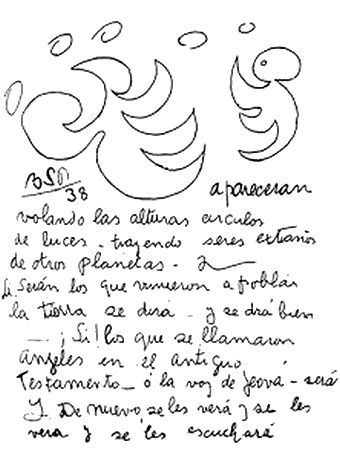 BSP
38
apareceran
volando las alturas circulos
de luces - trayendo seres extraños
de otros planetas - y
Si Serán los que vinieron a poblar
la tierra se dirá - y se drá bien
- ¡Si! los que se llamaron
angeles en el antiguo
Testamento - ó la voz de Jeová - será
Y De nuevo se les verá y se les
vera y se les escuchará